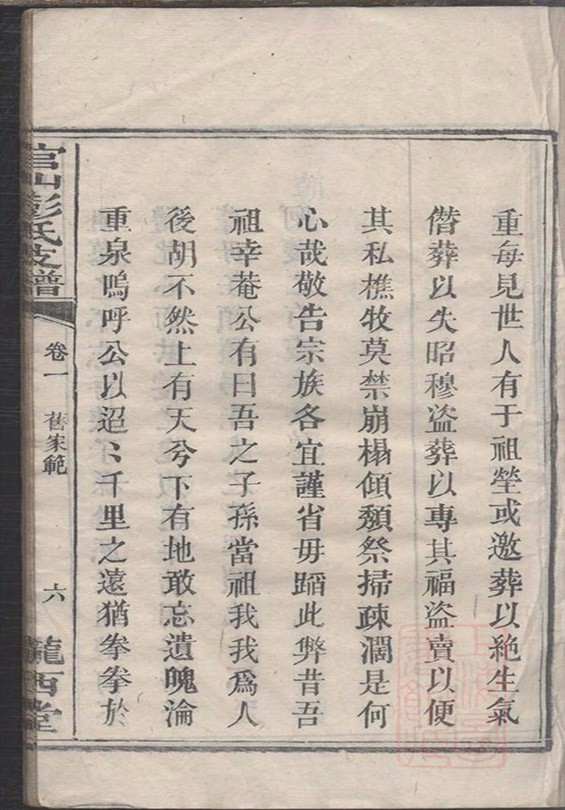 重每見世人有于祖塋或邀葬以絶生氣
僣葬以失昭穆盜葬以專其福盜賣以便
其私樵牧莫禁崩榻傾頽祭掃疎濶是何
心哉敬告宗族各宜謹省毋蹈此弊昔吾
祖幸菴公有曰吾之子孫當祖我我爲人
後胡不然上有天兮下有地敢忘遺魄淪
重泉嗚呼公以迢〻千里之遠猶拳拳於
官山彭氏支譜
卷一
舊家範
六
隴西堂